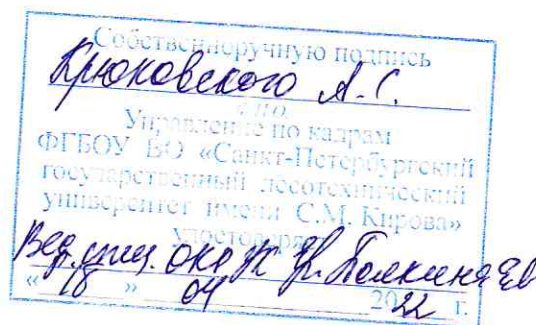 Собственноручную подпись
Крюковского А.С.
Ф.И.О.
Управление по кадрам
ФГБОУ ВО «Санкт-Петербургский
государственный лесотехнический
университет имени С.М. Кирова»
удостоверяет
Вед.
«18» 04 2022 г.